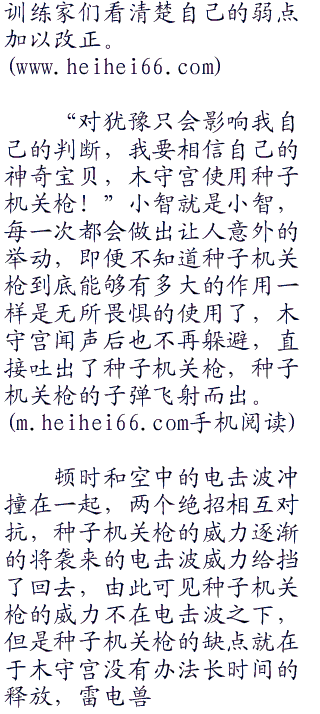 训练家们看清楚自己的弱点
加以改正。
(www.heihei66.com)
“对犹豫只会影响我自
己的判断，我要相信自己的
神奇宝贝，木守宫使用种子
机关枪！”小智就是小智，
每一次都会做出让人意外的
举动，即便不知道种子机关
枪到底能够有多大的作用一
样是无所畏惧的使用了，木
守宫闻声后也不再躲避，直
接吐出了种子机关枪，种子
机关枪的子弹飞射而出。
(m.heihei66.com手机阅读)
顿时和空中的电击波冲
撞在一起，两个绝招相互对
抗，种子机关枪的威力逐渐
的将袭来的电击波威力给挡
了回去，由此可见种子机关
枪的威力不在电击波之下，
但是种子机关枪的缺点就在
于木守宫没有办法长时间的
释放，雷电兽